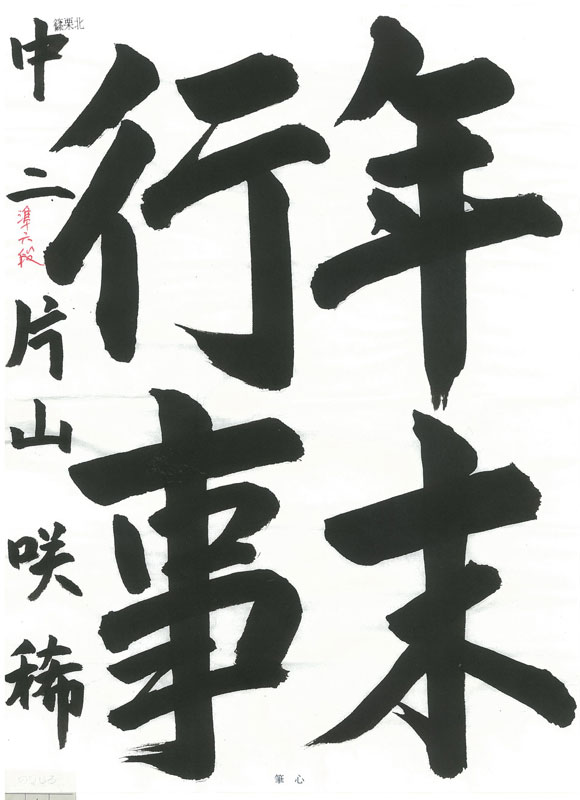 年末
行事
篠栗北
中二 片山咲稀
準六段
心筆